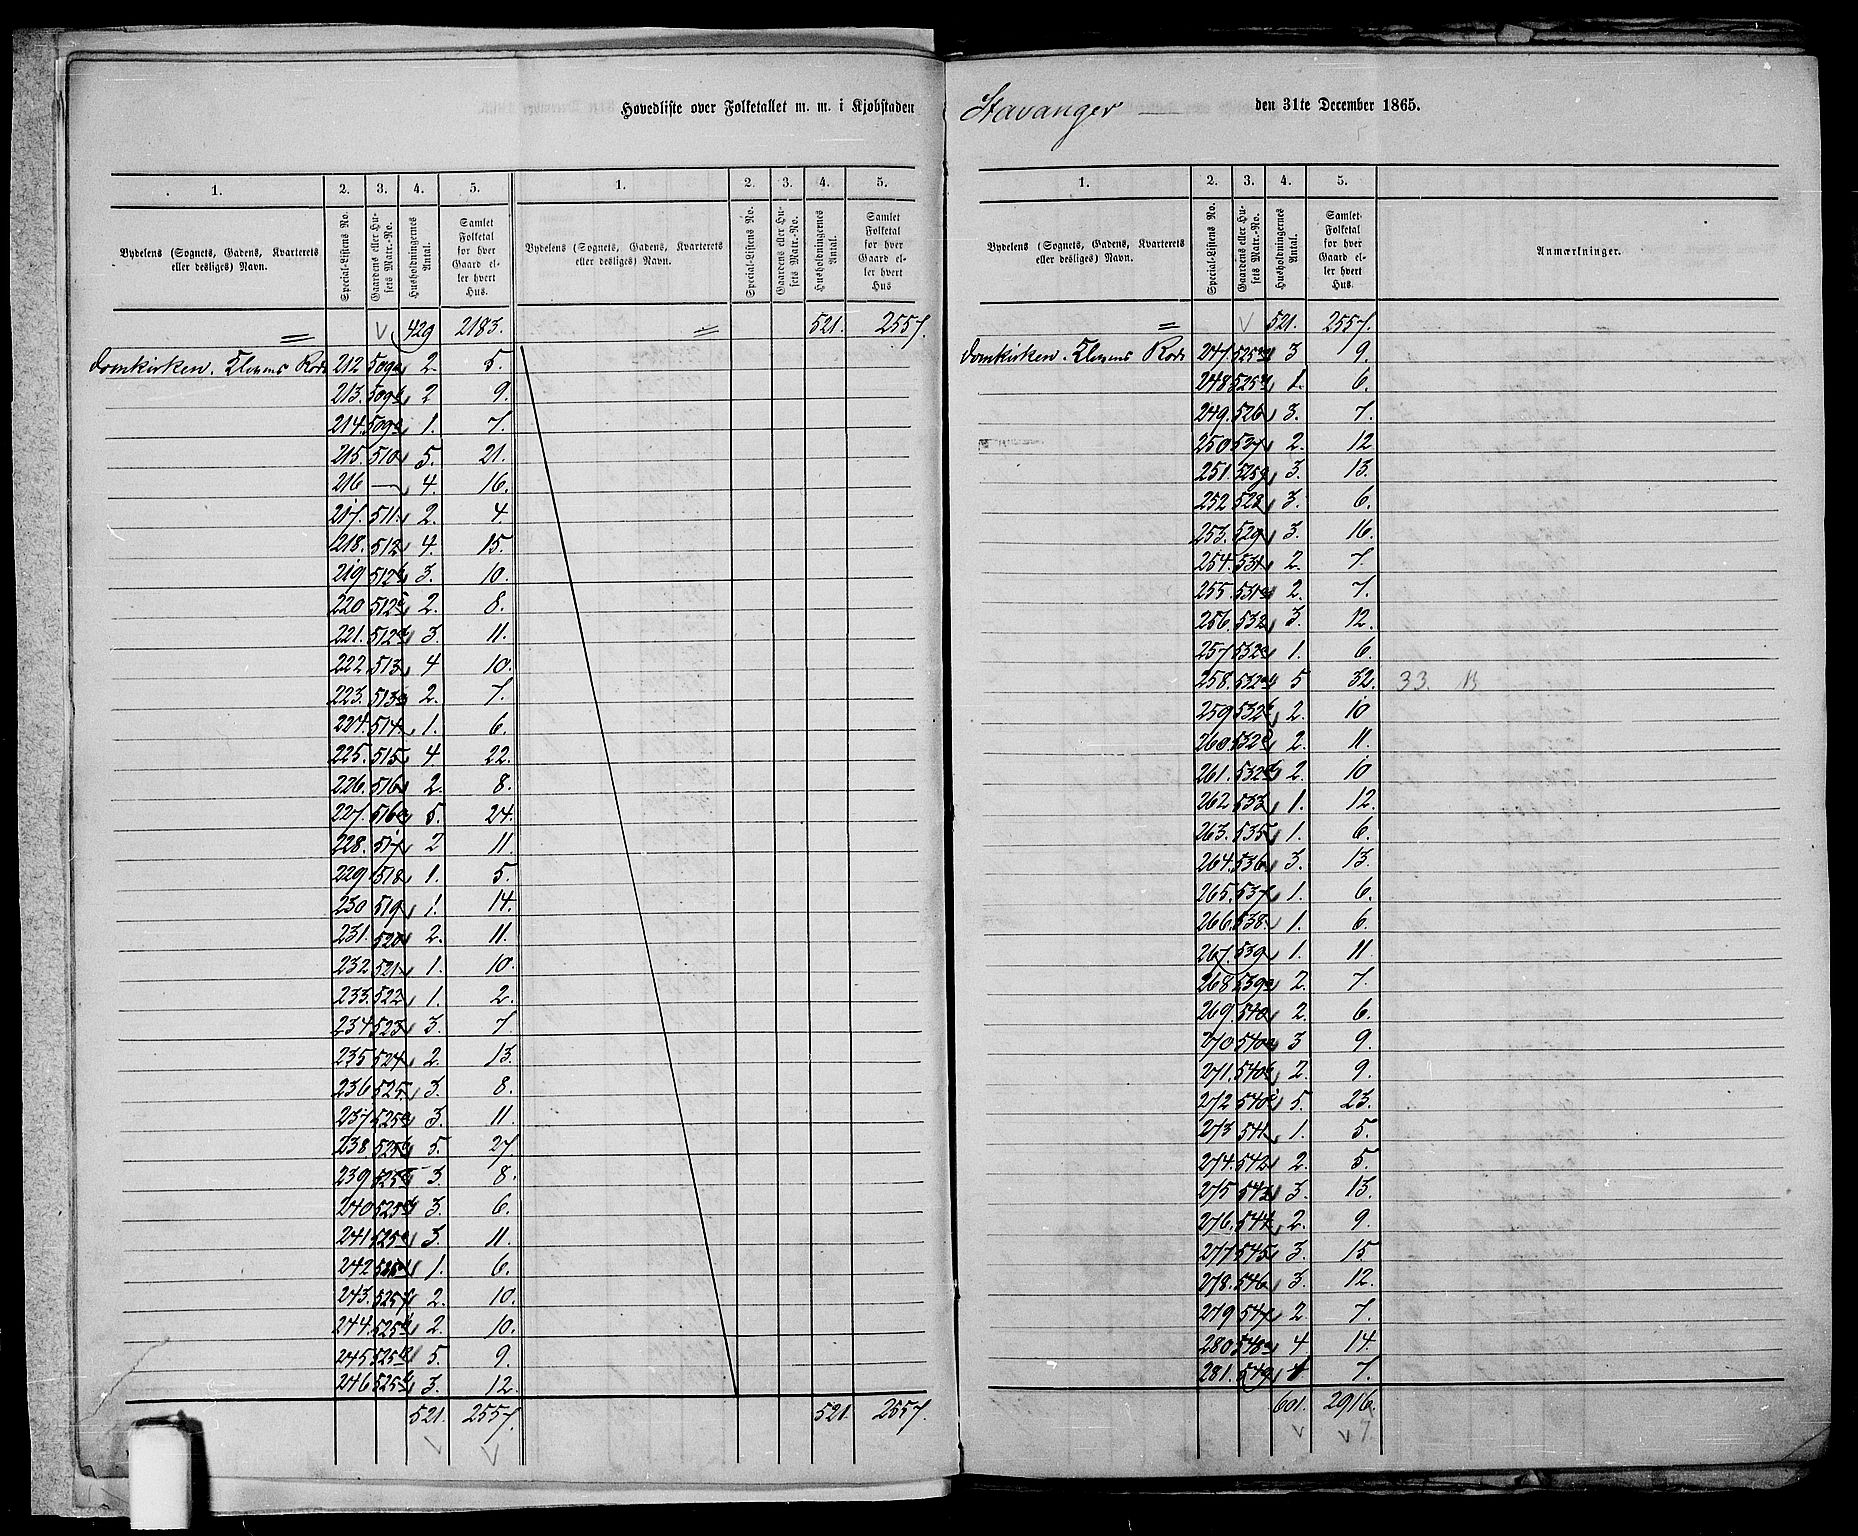 Hovedliste over Folketallet m. m. i Kjøbstaden Stavanger den 31te December 1865.
1. 2. 3. 4. 5. 1. 2. 3. 4. 5.
Bydelens (Sognets, Gadens, Kvarterets eller desliges) Navn. Special-Listens No. Gaardens eller Husets Matr.-No. Husholdningernes Antal. Samlet Folketal for hver Gaard eller hvert Hus. Bydelens (Sognets, Gadens, Kvarterets eller desliges) Navn. Special-Listens No. Gaardens eller Husets Matr.-No. Husholdningernes Antal. Samlet Folketal for hver Gaard eller hvert Hus
= V 429 2183. = 521. 2557.
Domkirken. Rode 212 509a 2. 5.
213. 509b 2 9.
214. 509c 1. 7.
215. 510 5. 21.
216 — 4. 16.
217. 511. 2. 4.
218. 512 4. 15.
219 512b 3. 10.
220 512c 2. 8.
221. 512d 3. 11.
222 513 4 10.
223. 513a 2. 7.
224. 514 1. 6.
225. 515 4 22.
226. 516 2. 8.
227. 516a 5. 24.
228. 517 2 11.
229 518 1. 5.
230 519 1. 14.
231. 520 2. 11.
232 521 1. 10.
233. 522 1. 2.
234 523 3. 7.
235 524 2. 13.
236 525 3. 8.
237 525a 3. 11.
238 525b 5. 27
239 525c 3. 8.
240 525d 3. 6.
241 525e 3. 11.
242 1. 6.
243. 525f 2. 10.
244. 2. 10.
245 5. 9.
246 3. 12.
521. 2557. 521. 2557.
V V
1. 2. 3. 4. 5.
Bydelens (Sognets, Gadens, Kvarterets eller desliges) Navn. Special-Listens No. Gaardens eller Husets Matr.-No. Husholdningernes Antal. Samlet Folketal for hver Gaard eller hvert Hus. Anmærkninger.
= V 521. 2557.
Domkirken. Rode 247. 3 9.
248 1. 6.
249. 526 3. 7.
250 527 2. 12
251. 525g 3. 13.
252 528 3. 6.
253. 529 3. 16.
254. 531 2. 7.
255. 531a 2. 7.
256. 532 3. 12.
257 1. 6.
258. 5 32. 33. B
259 532b 2. 10
260. 532c 2. 11.
261. 532d 2. 10
262 533 1. 12.
263. 535 1. 6.
264. 536 3. 13.
265. 537 1. 6.
266. 538. 1. 6.
267. 539 1. 11
268 539a 2. 7.
269. 540 2. 6.
270 540a 3 9.
271. 540b 2. 9.
272 540c 5. 23.
273 541 1. 5.
274. 542 2. 5.
275 543 3. 13.
276. 544 2. 9.
277 545 3. 15.
278. 546 3. 12.
279 547 2. 7.
280 548a 4 14.
281. 549 7.
601. 2916.
V V 7